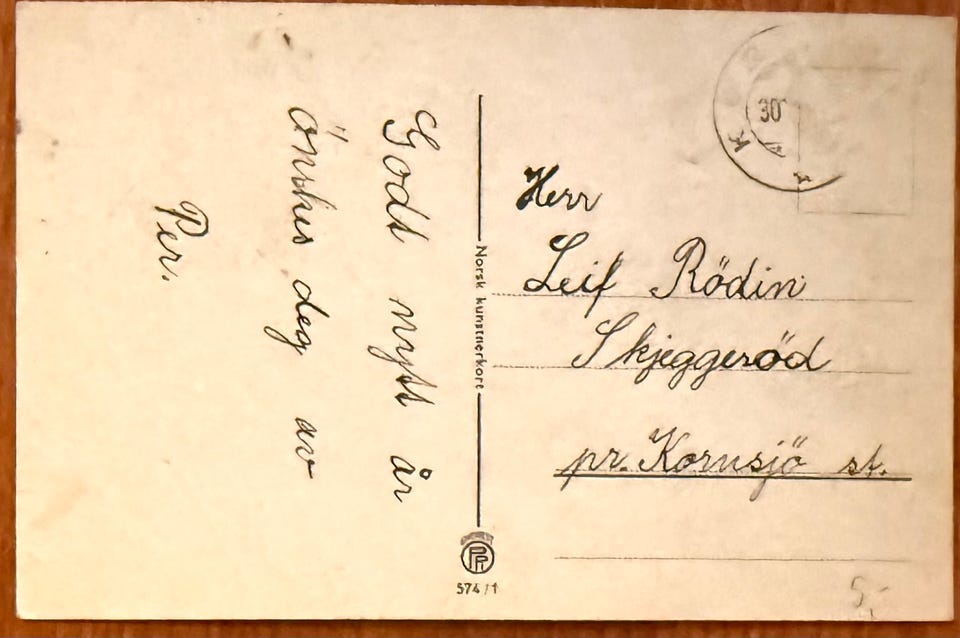 Godt nytt år
önskes deg av
Per.
Norsk kunstnerkort
574/1
30
Herr
Leif Rödin
Skjeggeröd
pr. Kornsjö st.
5,-